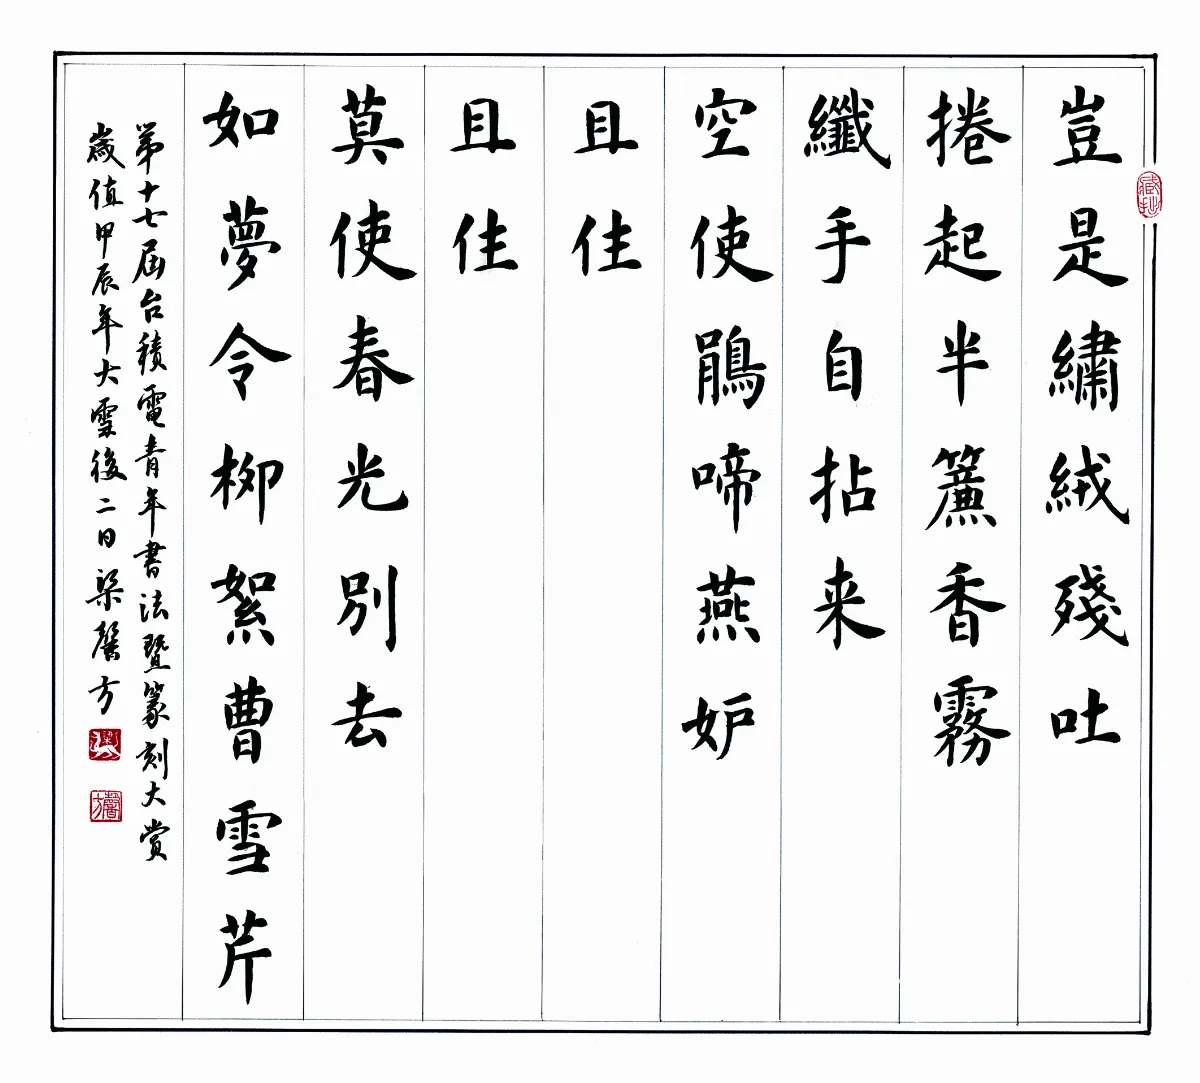 豈是繡絨殘吐
捲起半簾香霧
纖手自拈来
空使鵑啼燕妒
且住
且住
莫使春光別去
如夢令柳絮曹雪芹
第十七屆台積電青年書法暨篆刻大賞
歲值甲辰年大雪後二日梁馨方